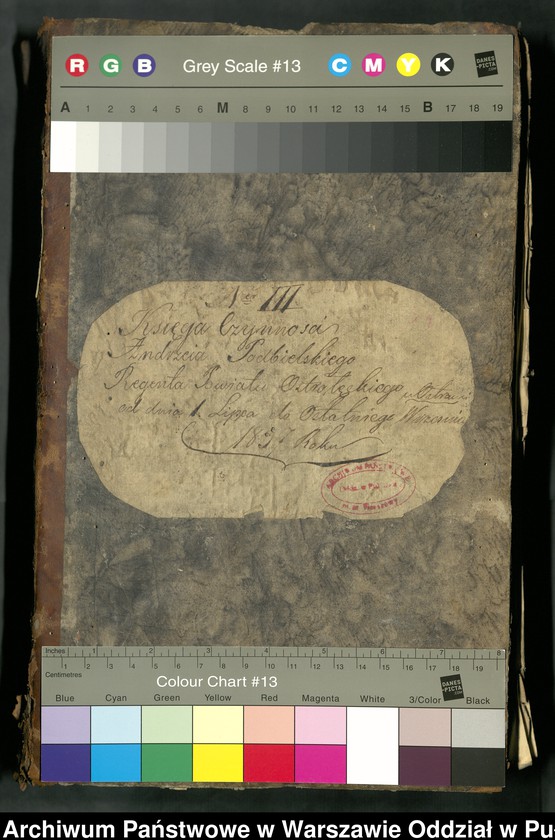 R G B Grey Scale #13 C M Y K DANES-PICTA.COM
A 1 2 3 4 5 6 M 8 9 10 11 12 13 14 15 B 17 18 19
Nro III
Księga Czynności
Andrzeia Podbielskiego
Regenta Powiatu Ostrołęckiego w Ostrowi
od dnia 1 Lipca do Ostatniego Września
Roku
Inches 1 2 3 4 5 6 7 8
Centimetres 1 2 3 4 5 6 7 8 9 10 11 12 13 14 15 16 17 18 19
Colour Chart #13 DANES-PICTA.COM
Blue Cyan Green Yellow Red Magenta White 3/Color Black
Archiwum Państwowe w Warszawie Oddział w Pu